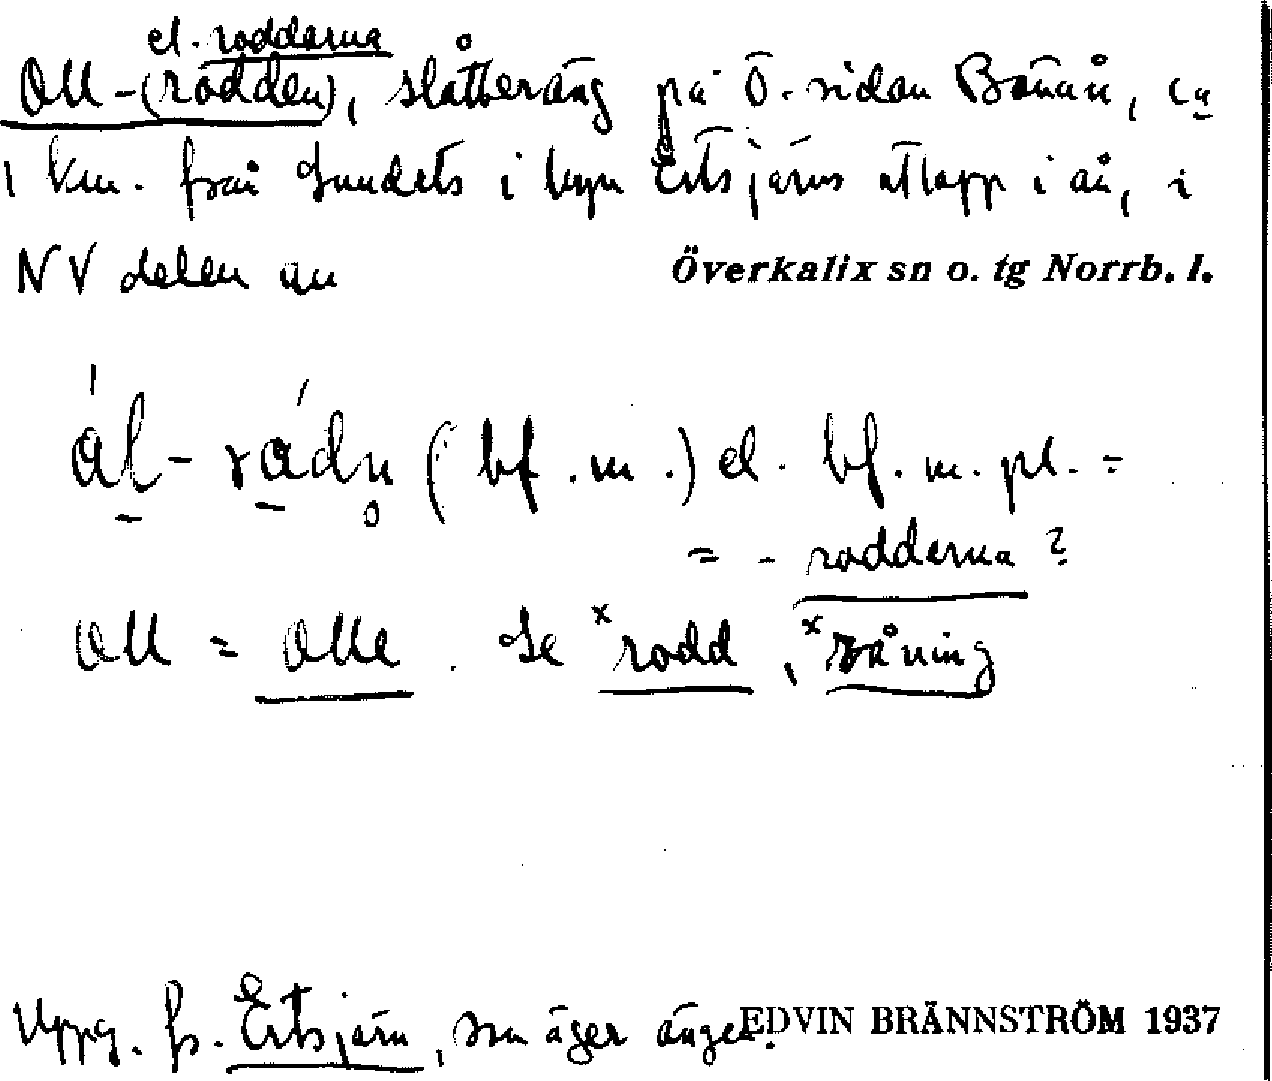 el. rodderna
Oll-(rodden), slåtteräng på Ö. sidan Bönån, ca
1 km. från Sundets i byn Ertsjärvs utlopp i ån, i
NV delen av Överkalix sn o. tg Norrb. l.
ál-rádn̥ (bf. m.) el. bf. m. pl. =
= -rodderna?
Oll = Olle. Se ˣrodd, ˣråning
Uppg. fr. Ertsjärv, som äger ängen. EDVIN BRÄNNSTRÖM 1937